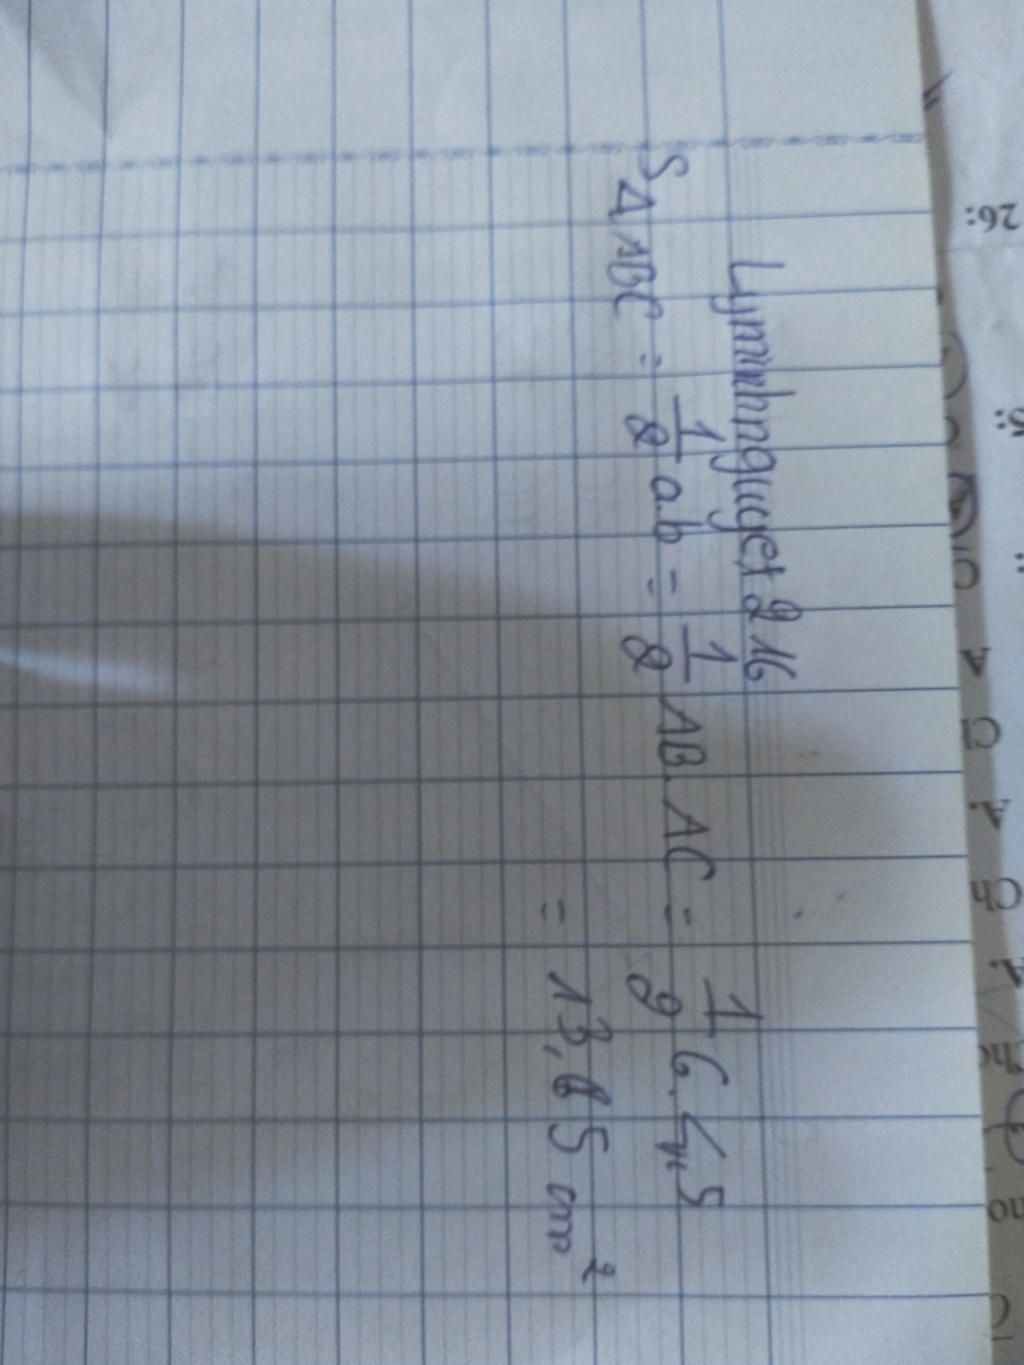 Lyminhnguyet 216
S△ABC = 1/2 a.b = 1/2 AB. AC = 1/2 6.4,5
= 13,65 cm²
26:
5:
:
C
A
Cl
A.
Ch
A.